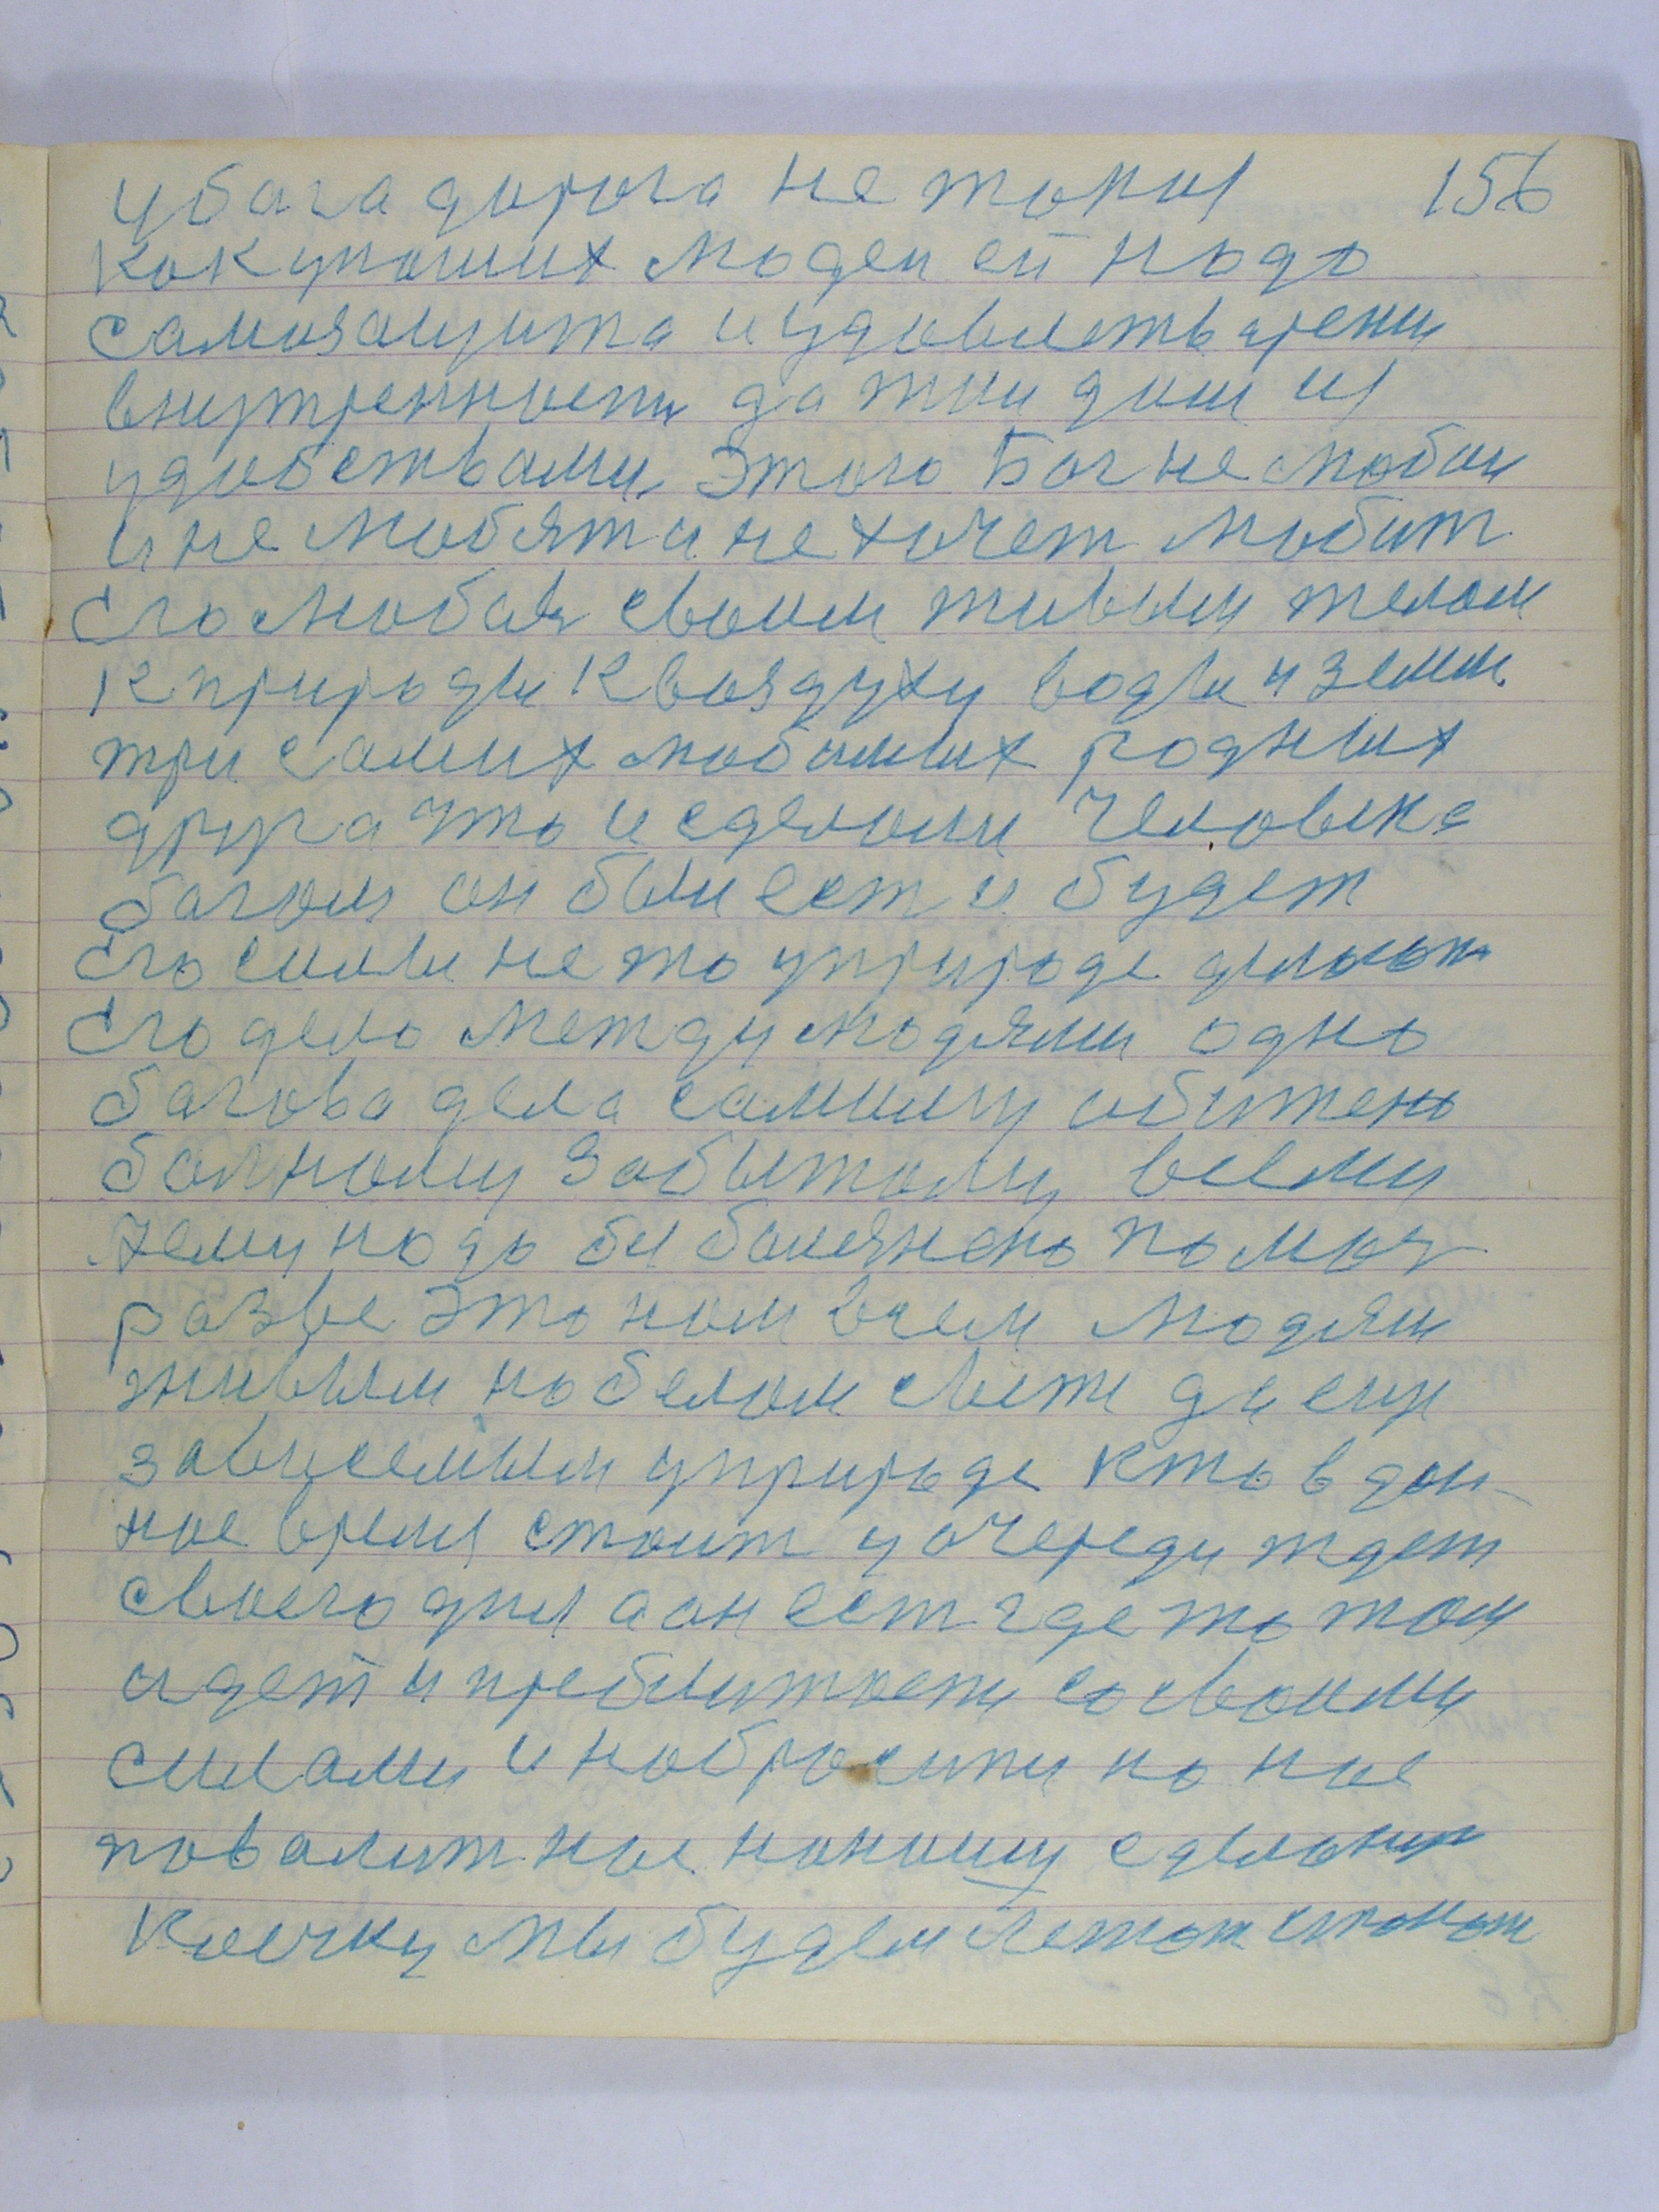 убога дорога не такая 156
как унаших людей ей надо
самозащита и удовлетварени
внутренности да жил дом из
удобствами, этого Бог не любил
и не любят и не хочет любит
Его любовь своим живым телом
к природы к воздуху воды и земли
три самих любимих родных
друга что и сделали человека
богом он был ест и будет
Его силы не то уприроде делают
Его дело между людями одно
богова дела самиму обижено
болному забытому всеми
кему надо бы болезнено помоч
разве это нам всем людям
живым на белом свети да ещи
зависемым уприроде кто в дан-
ное время стоит у очереди ждет
своего дня а он ест где то там
идет и преближаети со своими
силами и набросити на нас
повалит нас нанашу сделаную
коечку мы будем лежат стонат